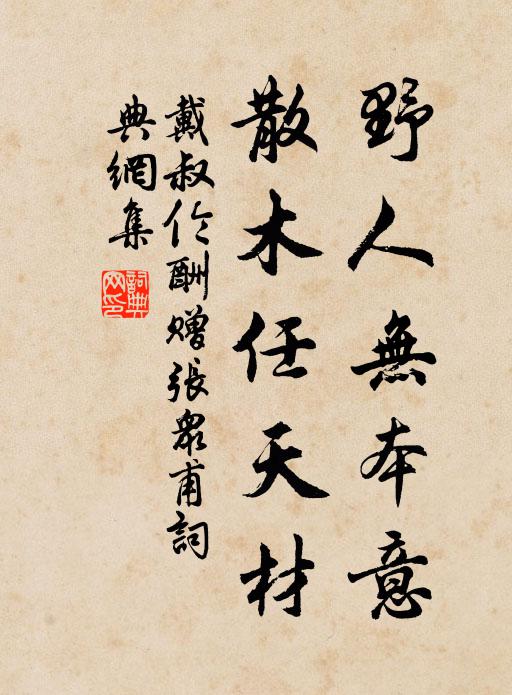 野人無本意
散木任天材
戴叔伦酬赠張衆甫詞
典網集
詞典网印